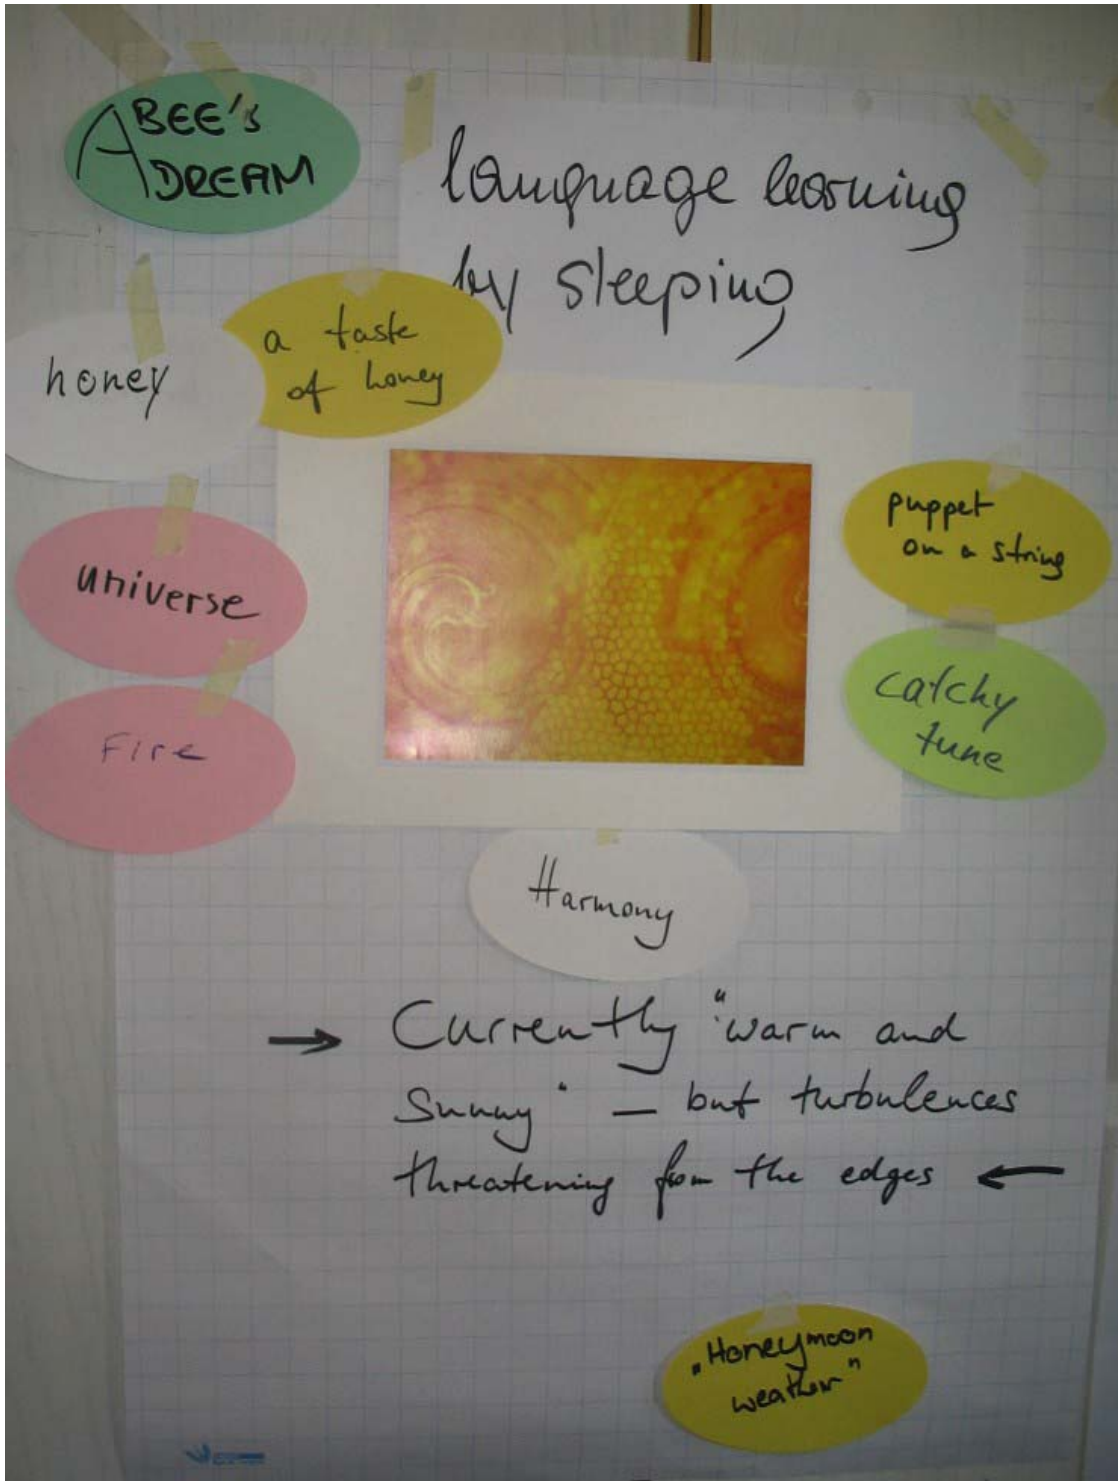 A BEE'S
DREAM
language learning
by sleeping
honey
a taste
of honey
universe
Fire
puppet
on a string
catchy
tune
Harmony
→ Currently "warm and
sunny" — but turbulences
threatening from the edges ←
„Honeymoon
weather"